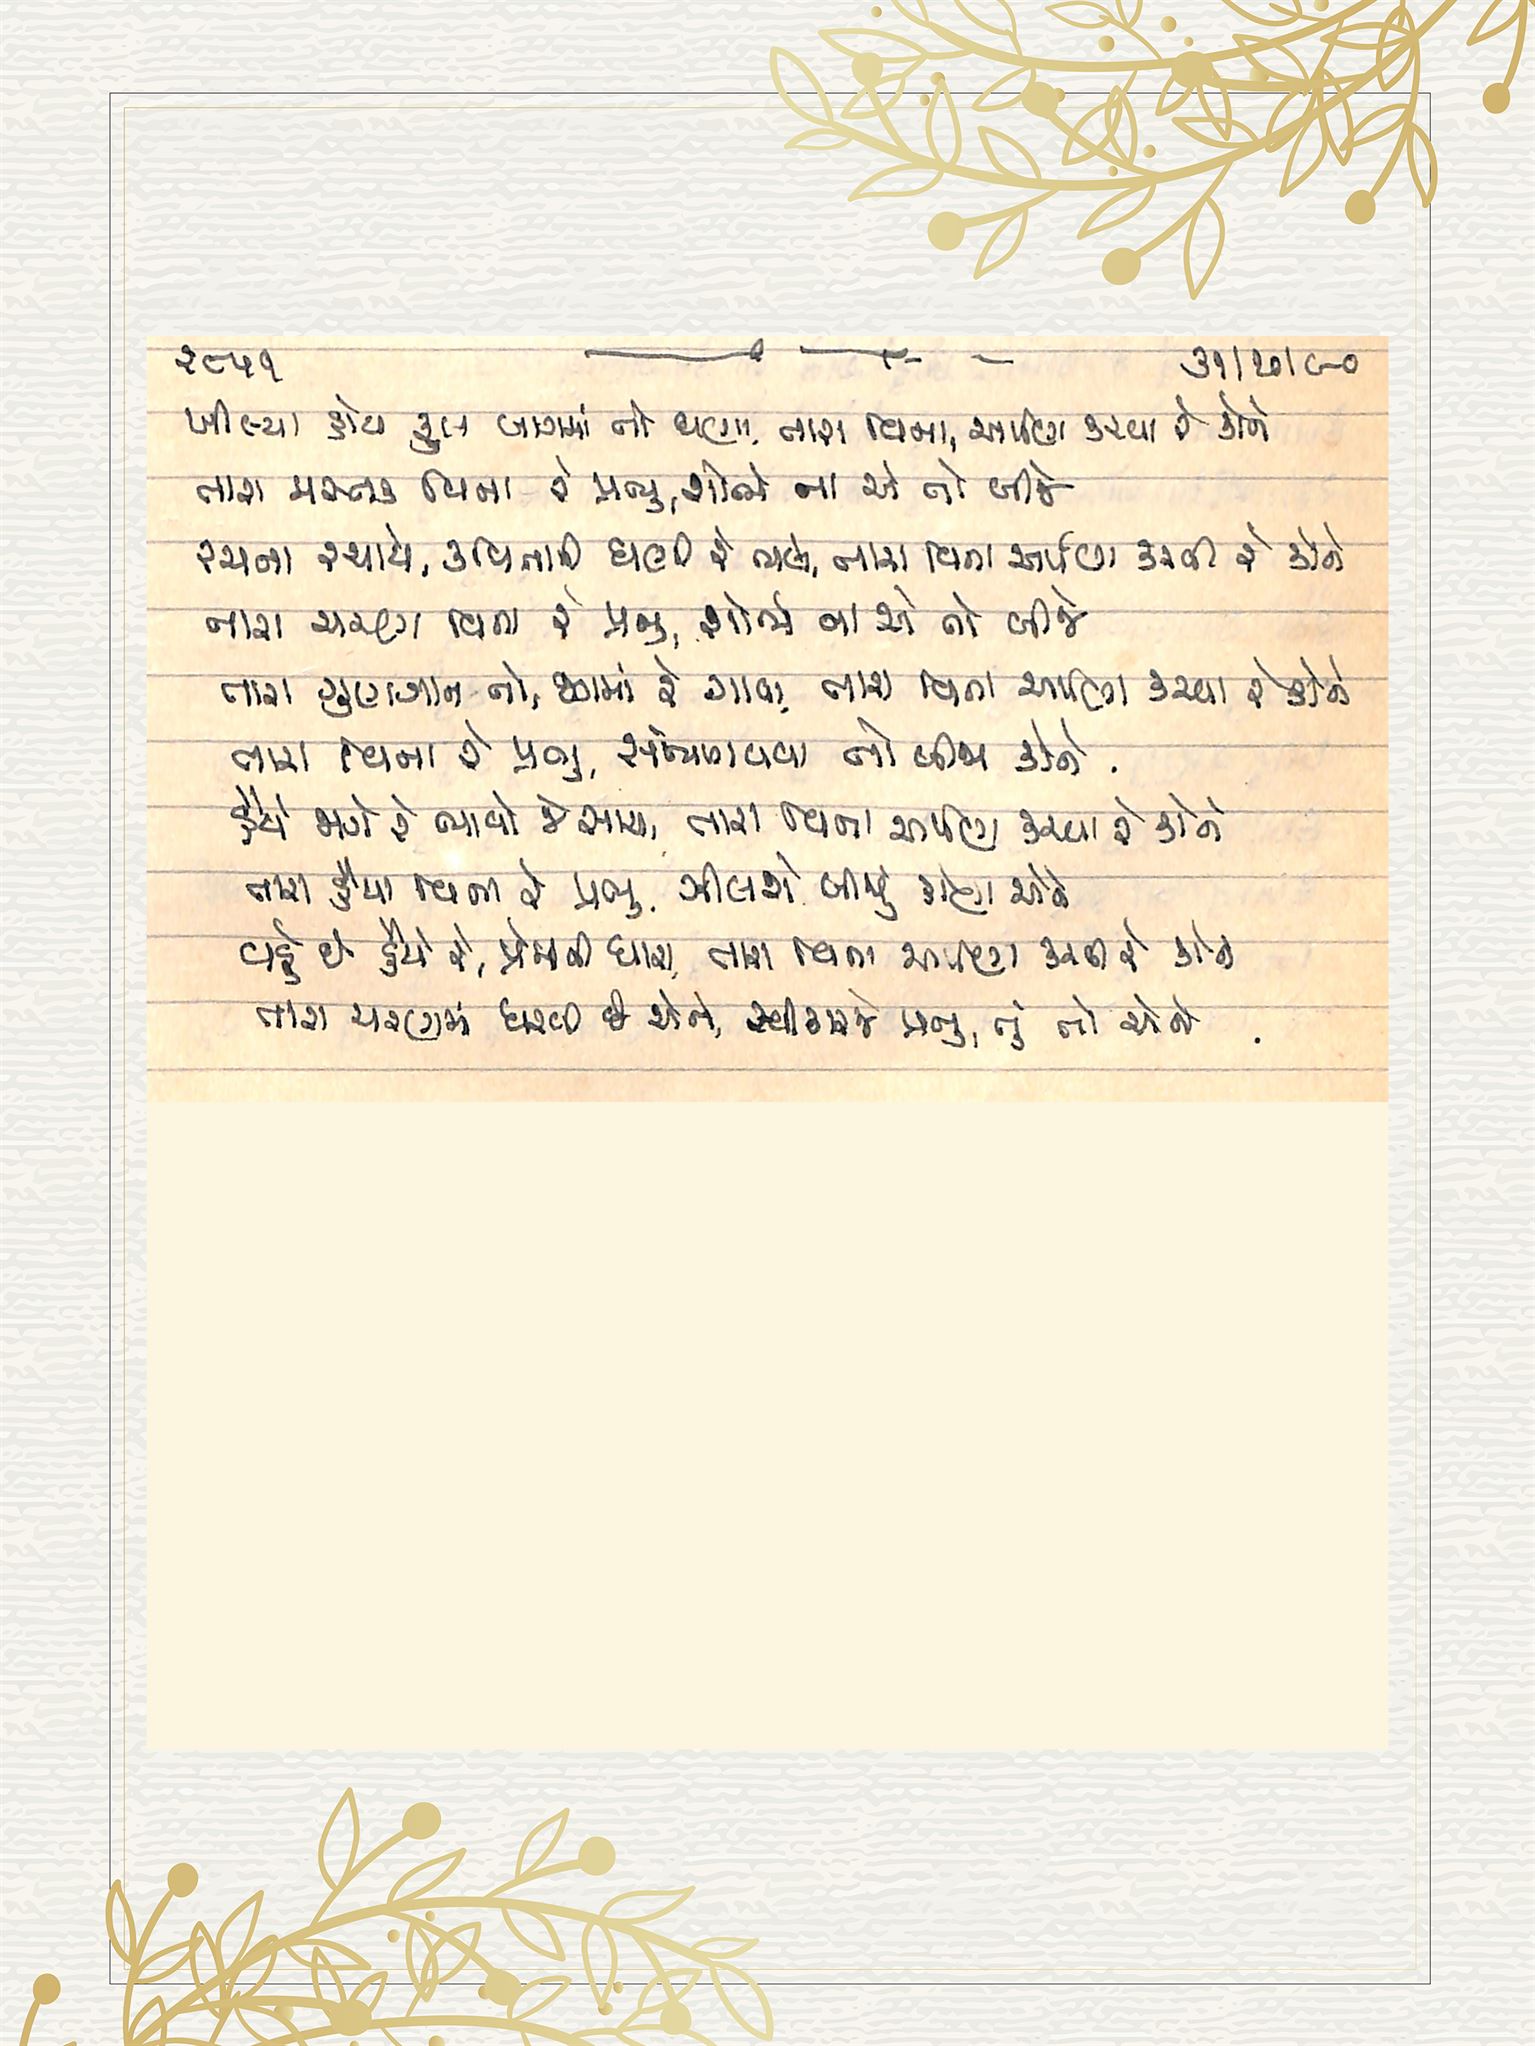 ૨૯૫૧ ૩૧/૧૦/૯૦
ખીલ્યા હોય ફૂલ બાગમાં તો ઘણા, તારા વિના, અર્પણ કરવા રે કોને
તારા મસ્તક વિના રે પ્રભુ, શોભે ના એ તો બીજે
રચના રચાયે, કવિતાની ઘણી રે ભલે, તારા વિના અર્પણ કરવી રે કોને
તારા ચરણ વિના રે પ્રભુ, શોભે ના એ તો બીજે
તારા ગુણગાન તો, છે રે ગાવા, તારા વિના અર્પણ કરવા રે કોને
તારા વિના રે પ્રભુ, સંભળાવવા તો બીજા કોને.
હૈયે જાગે રે ભાવો જે સારા, તારા વિના અર્પણ કરવા રે કોને
તારા હૈયા વિના રે પ્રભુ, ઝીલશે બીજું કોણ એને
વહે છે હૈયે રે, પ્રેમની ધારા, તારા વિના અર્પણ કરવી રે કોને
તારા ચરણમાં ધરવી છે એને, સ્વીકારજે પ્રભુ, તું તો એને.